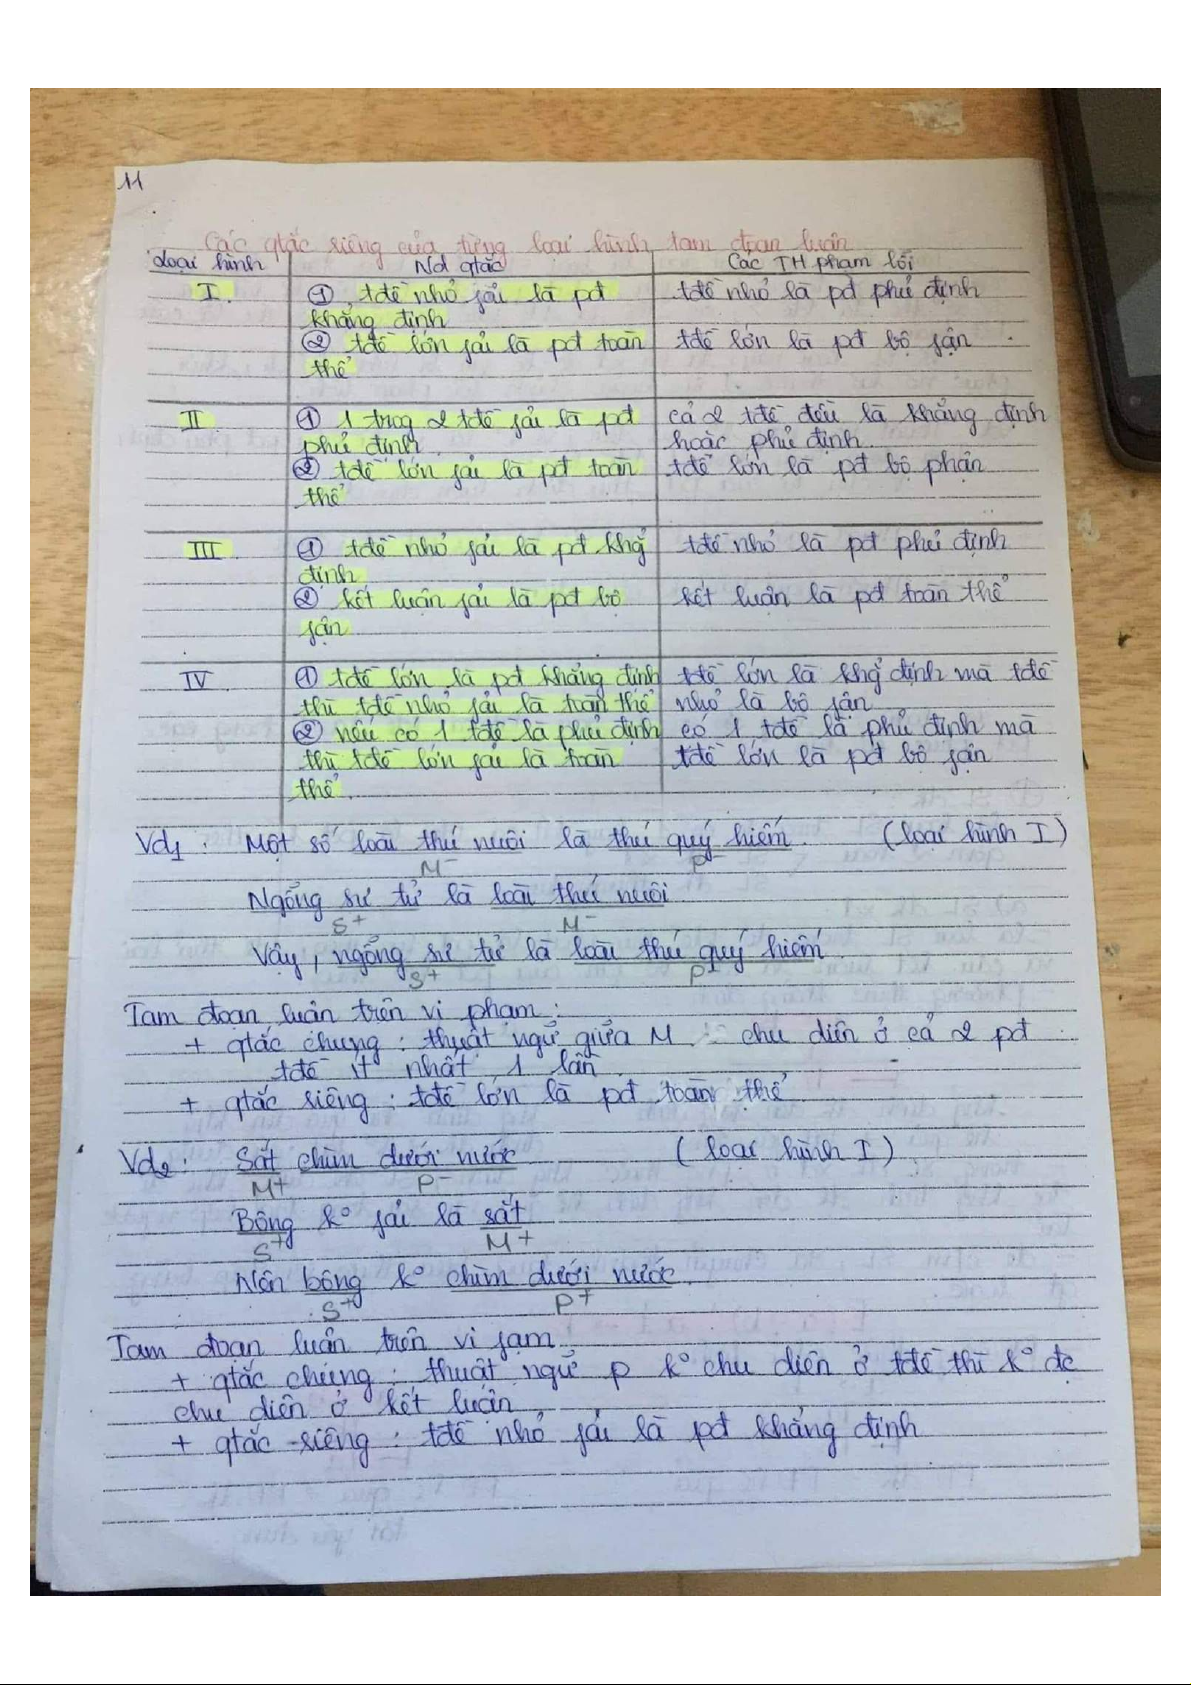 11
Các qtắc riêng của từng loại hình tam đoạn luận
Loại hình Nd qtắc Các TH phạm lỗi
I. ① tđề nhỏ fải là pđ tđề nhỏ là pđ phủ định
khẳng định
② tđề lớn fải là pđ toàn tđề lớn là pđ bộ fận
thể
II ① 1 trog 2 tđề fải là pđ cả 2 tđề đều là khẳng định
phủ định. hoặc phủ định.
② tđề lớn fải là pđ toàn tđề lớn là pđ bộ phận
thể
III. ① tđề nhỏ fải là pđ khẳg tđề nhỏ là pđ phủ định
định
② kết luận fải là pđ bộ kết luận là pđ toàn thể
fận
IV ① tđề lớn là pđ khẳng định tđề lớn là khẳg định mà tđề
thì tđề nhỏ fải là toàn thể nhỏ là bộ fận
② nếu có 1 tđề là phủ định có 1 tđề là phủ định mà
thì tđề lớn fải là toàn tđề lớn là pđ bộ fận
thể.
Vd1: Một số loài thú nuôi là thú quý hiếm. (loại hình I)
M⁻ P⁻
Ngỗng sư tử là loài thú nuôi
S⁺ M⁻
Vậy, ngỗng sư tử là loài thú quý hiếm.
S⁺ P⁻
Tam đoạn luận trên vi phạm:
+ qtắc chung: thuật ngữ giữa M chu diên ở cả 2 pđ
tđề ít nhất 1 lần.
+ qtắc riêng: tđề lớn là pđ toàn thể
Vd2: Sắt chìm dưới nước (loại hình I)
M⁺ P⁻
Bông k° fải là sắt
S⁺ M⁺
Nên bông k° chìm dưới nước.
S⁺ P⁺
Tam đoạn luận trên vi fạm
+ qtắc chung: thuật ngữ P k° chu diên ở tđề thì k° đc
chu diên ở kết luận.
+ qtắc riêng: tđề nhỏ fải là pđ khẳng định